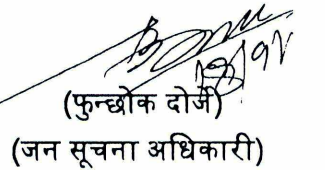 (फुन्छोक दोर्जे)
(जन सूचना अधिकारी)